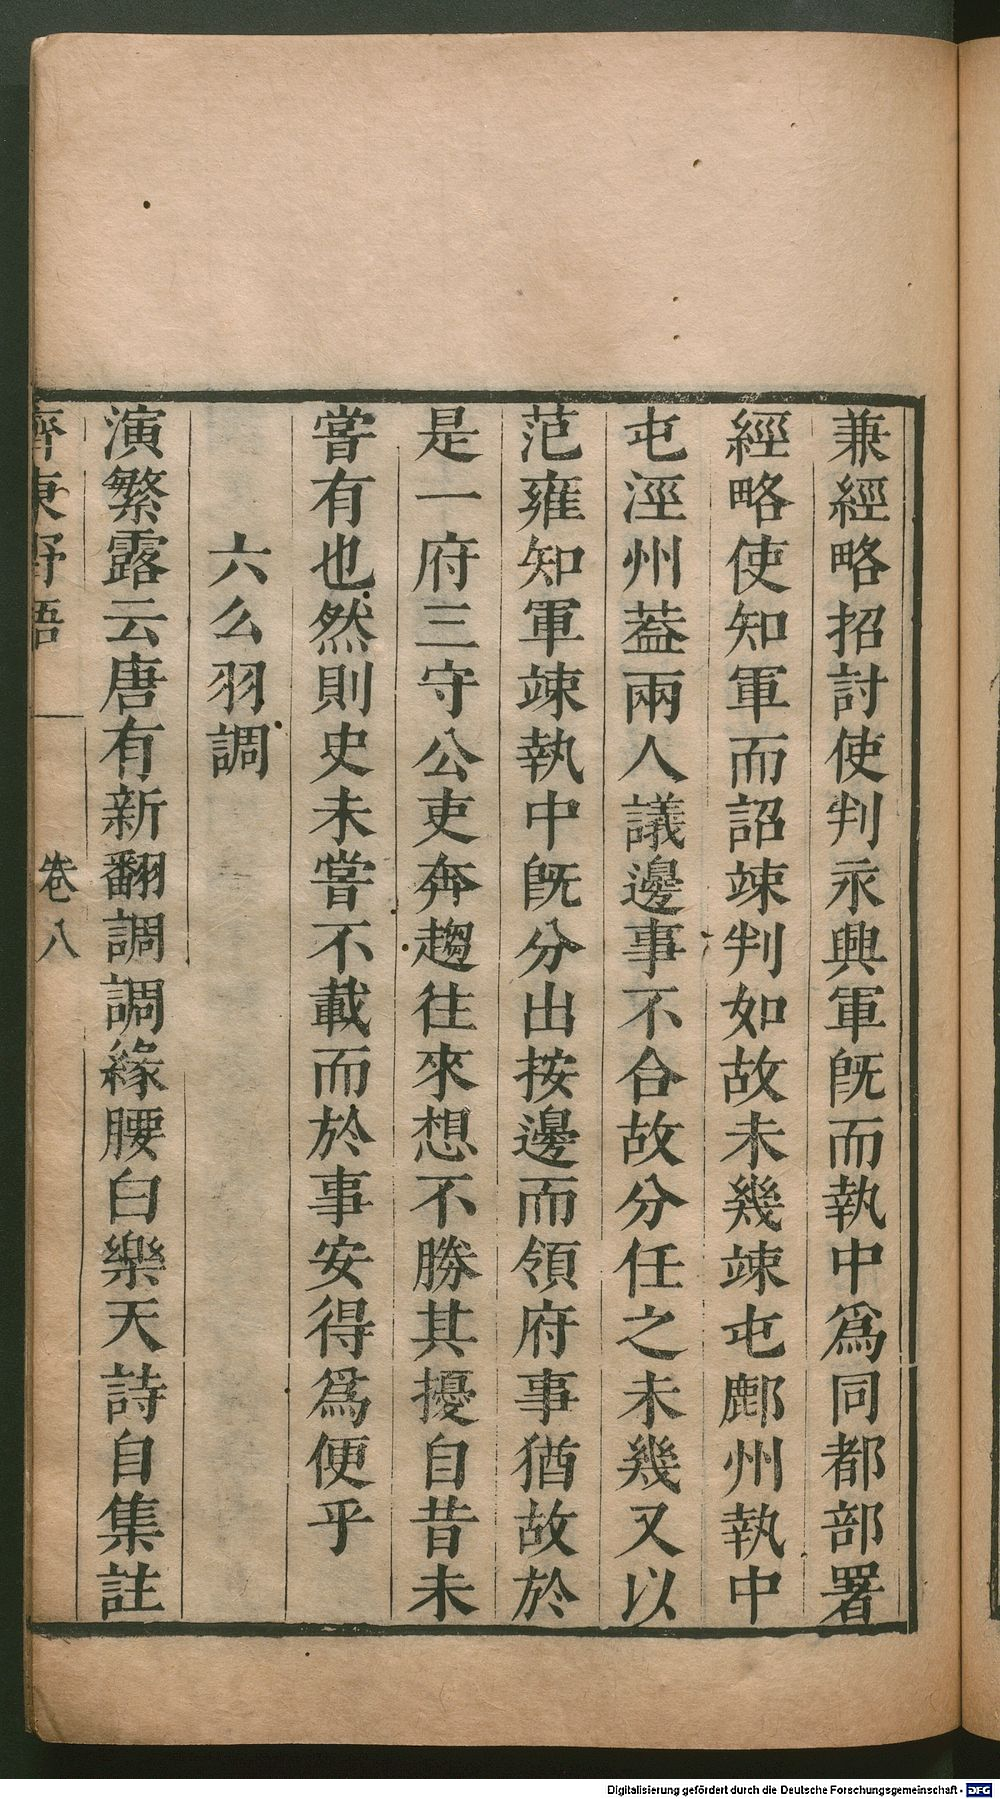 兼經略招討使判永興軍旣而執中爲同都部署
經略使知軍而詔竦判如故未幾竦屯鄜州執中
屯涇州葢兩人議邊事不合故分任之未幾又以
范雍知軍竦執中旣分出按邊而領府事猶故於
是一府三守公吏奔趨往來想不勝其擾自昔未
嘗有也然則史未嘗不載而於事安得爲便乎
六么羽調
演繁露云唐有新翻調調緣腰白樂天詩自集註
齊東野語 卷八
Digitalisierung gefördert durch die Deutsche Forschungsgemeinschaft - DFG